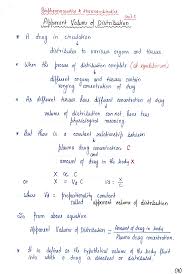 Biopharmaceutics & Pharmacokinetics
Unit-2
Apparent Volume of Distribution
→ A drug in circulation
↓
distributes to various organs and tissues
→ When the process of distribution complete (at equilibrium)
↓
different organs and tissues contain
varying concentration of drug
→ As different tissues have different concentration of drug
↓
volume of distribution can not have true
physiological meaning
→ But there is a constant relationship between
plasma drug concentration C
and
amount of drug in the body X
or X ∝ C
or X = Vd C Vd = X/C
where Vd = proportionality constant
called apparent volume of distribution
So from above equation
Apparent Volume of Distribution = Amount of drug in body / Plasma drug concentration
→ It is defined as the hypothetical volume of body fluid
into which a drug is dissolved or distributed